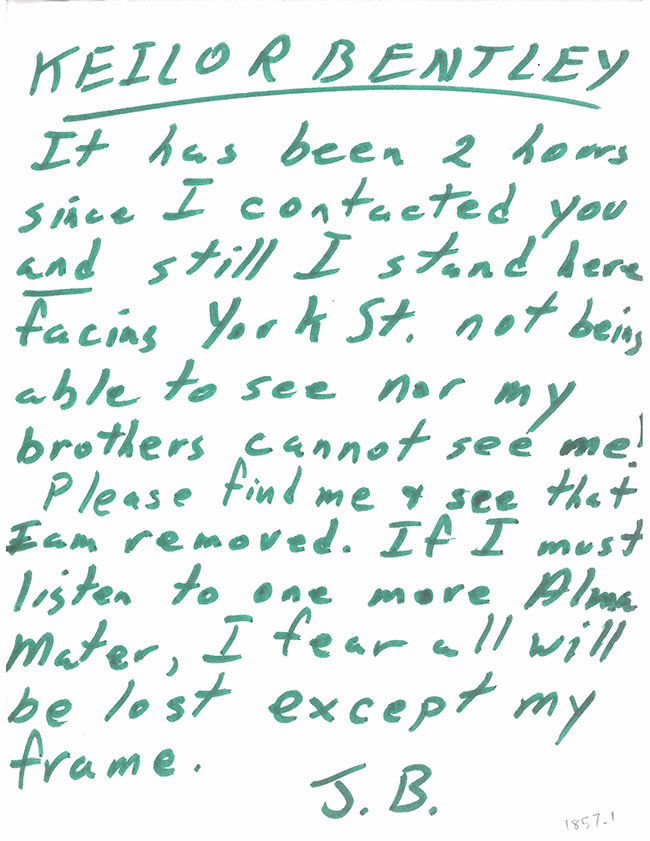 KEILOR BENTLEY
It has been 2 hours
since I contacted you
and still I stand here
facing York St. not being
able to see nor my
brothers cannot see me!
Please find me & see that
I am removed. If I must
listen to one more Alma
Mater, I fear all will
be lost except my
frame.
J. B.
1857-1